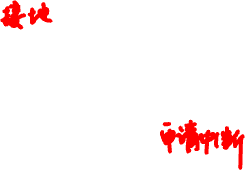 接地
申请中断